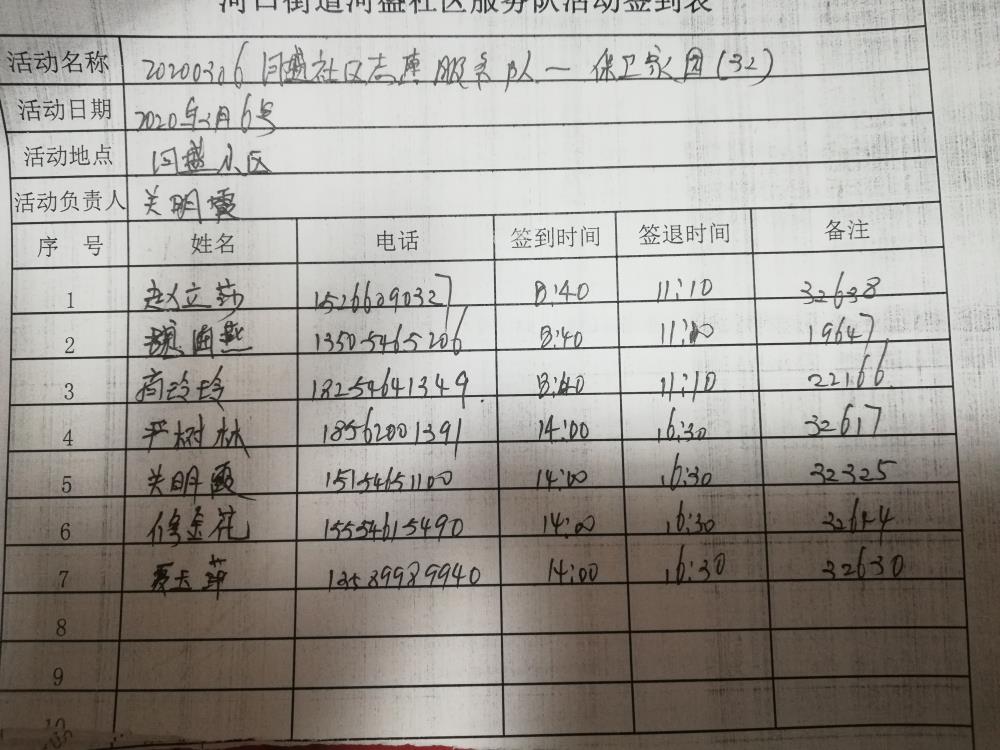 河口街道河盛社区服务队活动签到表
活动名称 20200306河盛社区志愿服务队一保卫家园(32)
活动日期 2020年3月6号
活动地点 河盛小区
活动负责人 关明霞
序号 姓名 电话 签到时间 签退时间 备注
1 赵立莎 15266090327 8:40 11:10 32638
2 13505465206 8:40 11:10 19647
3 高玲玲 18254641349 8:40 11:10 22166
4 严树林 18562001391 14:00 16:30 32617
5 关明霞 15154651100 14:00 16:30 32325
6 徐金花 15554615490 14:00 16:30 32644
7 13589989940 14:00 16:30 32630
8
9
10